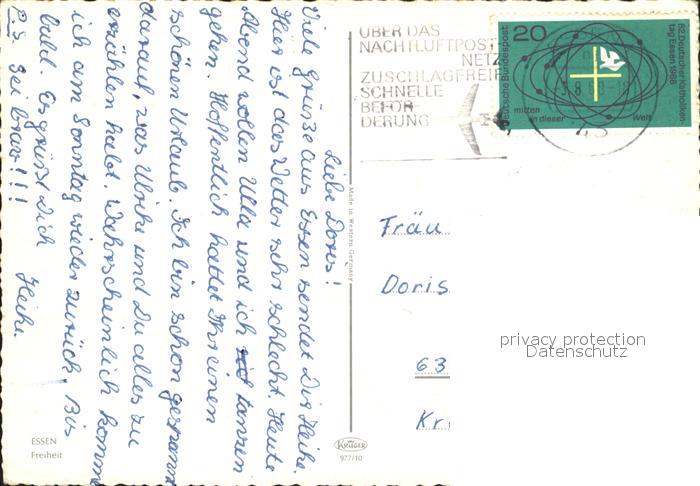 Liebe Doris!
Viele Grüße aus Essen sendet Dir Heike.
Hier ist das Wetter sehr schlecht. Heute
Abend wollen Ulla und ich tanzen
gehen. Hoffentlich hattet Ihr einen
schönen Urlaub. Ich bin schon gespannt
darauf, was Ulrike und Du alles zu
erzählen habt. Wahrscheinlich komme
ich am Sonntag wieder zurück. Bis
bald. Es grüßt Dich
Heike.
P.S. Sei brav!!!
ESSEN
Freiheit
Made in Western Germany
KRÜGER
977/10
ÜBER DAS
NACHTLUFTPOST
NETZ
ZUSCHLAGFREIE
SCHNELLE
BEFÖR
DERUNG
20
Deutsche Bundespost
82. Deutscher Katholiken-
tag Essen 1968
mitten
in dieser Welt
Fräu
Doris
63
Kr
privacy protection
Datenschutz